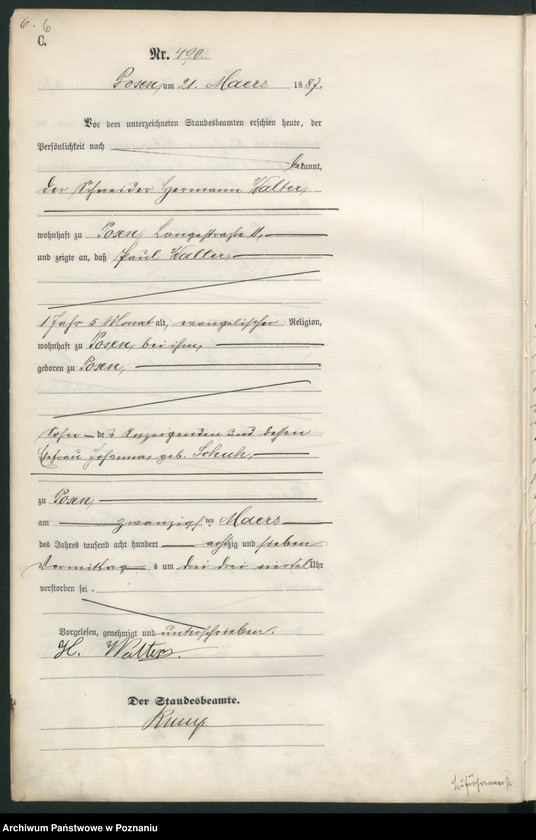 6. 6
C.
Nr. 490.
Posen, am 21. Maerz 1887.
Vor dem unterzeichneten Standesbeamten erschien heute, der
Persönlichkeit nach
bekannt,
der Schneider Hermann Walter,
wohnhaft zu Posen, Langestraße 11,
und zeigte an, daß Paul Walter,
1 Jahr 5 Monat alt, evangelischer Religion,
wohnhaft zu Posen, bei ihm,
geboren zu Posen,
Sohn des Anzeigenden und dessen
Ehefrau Johanna, geb.
zu Posen,
am zwanzigsten Maerz
des Jahres tausend acht hundert achtzig und sieben
Vormittags um drei drei viertel Uhr
verstorben sei.
Vorgelesen, genehmigt und unterschrieben.
H. Walter.
Der Standesbeamte.
Archiwum Państwowe w Poznaniu